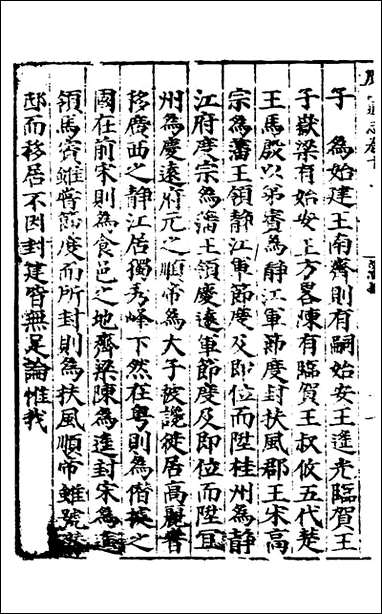 子　為始建王南齊則有嗣始安王遥光臨賀王
子嶽梁有始安王方畧陳有臨賀王叔攸五代楚
王馬殷以弟賓為静江軍節度封扶風郡王宋高
宗為藩王領静江軍節度及即位而陞桂州為静
江府度宗為藩王領慶逺軍節度及即位而陞宜
州為慶逺府元之順帝為大子被讒徙居高麗晋
移廣西之静江居獨秀峰下然在粤則為僭竊之
國在前宋則為食邑之地齊梁陳為遥封宋為遥
領馬賓雖晋節度而所封則為扶風順帝雖號
邸而移居不因封建皆無足論惟我